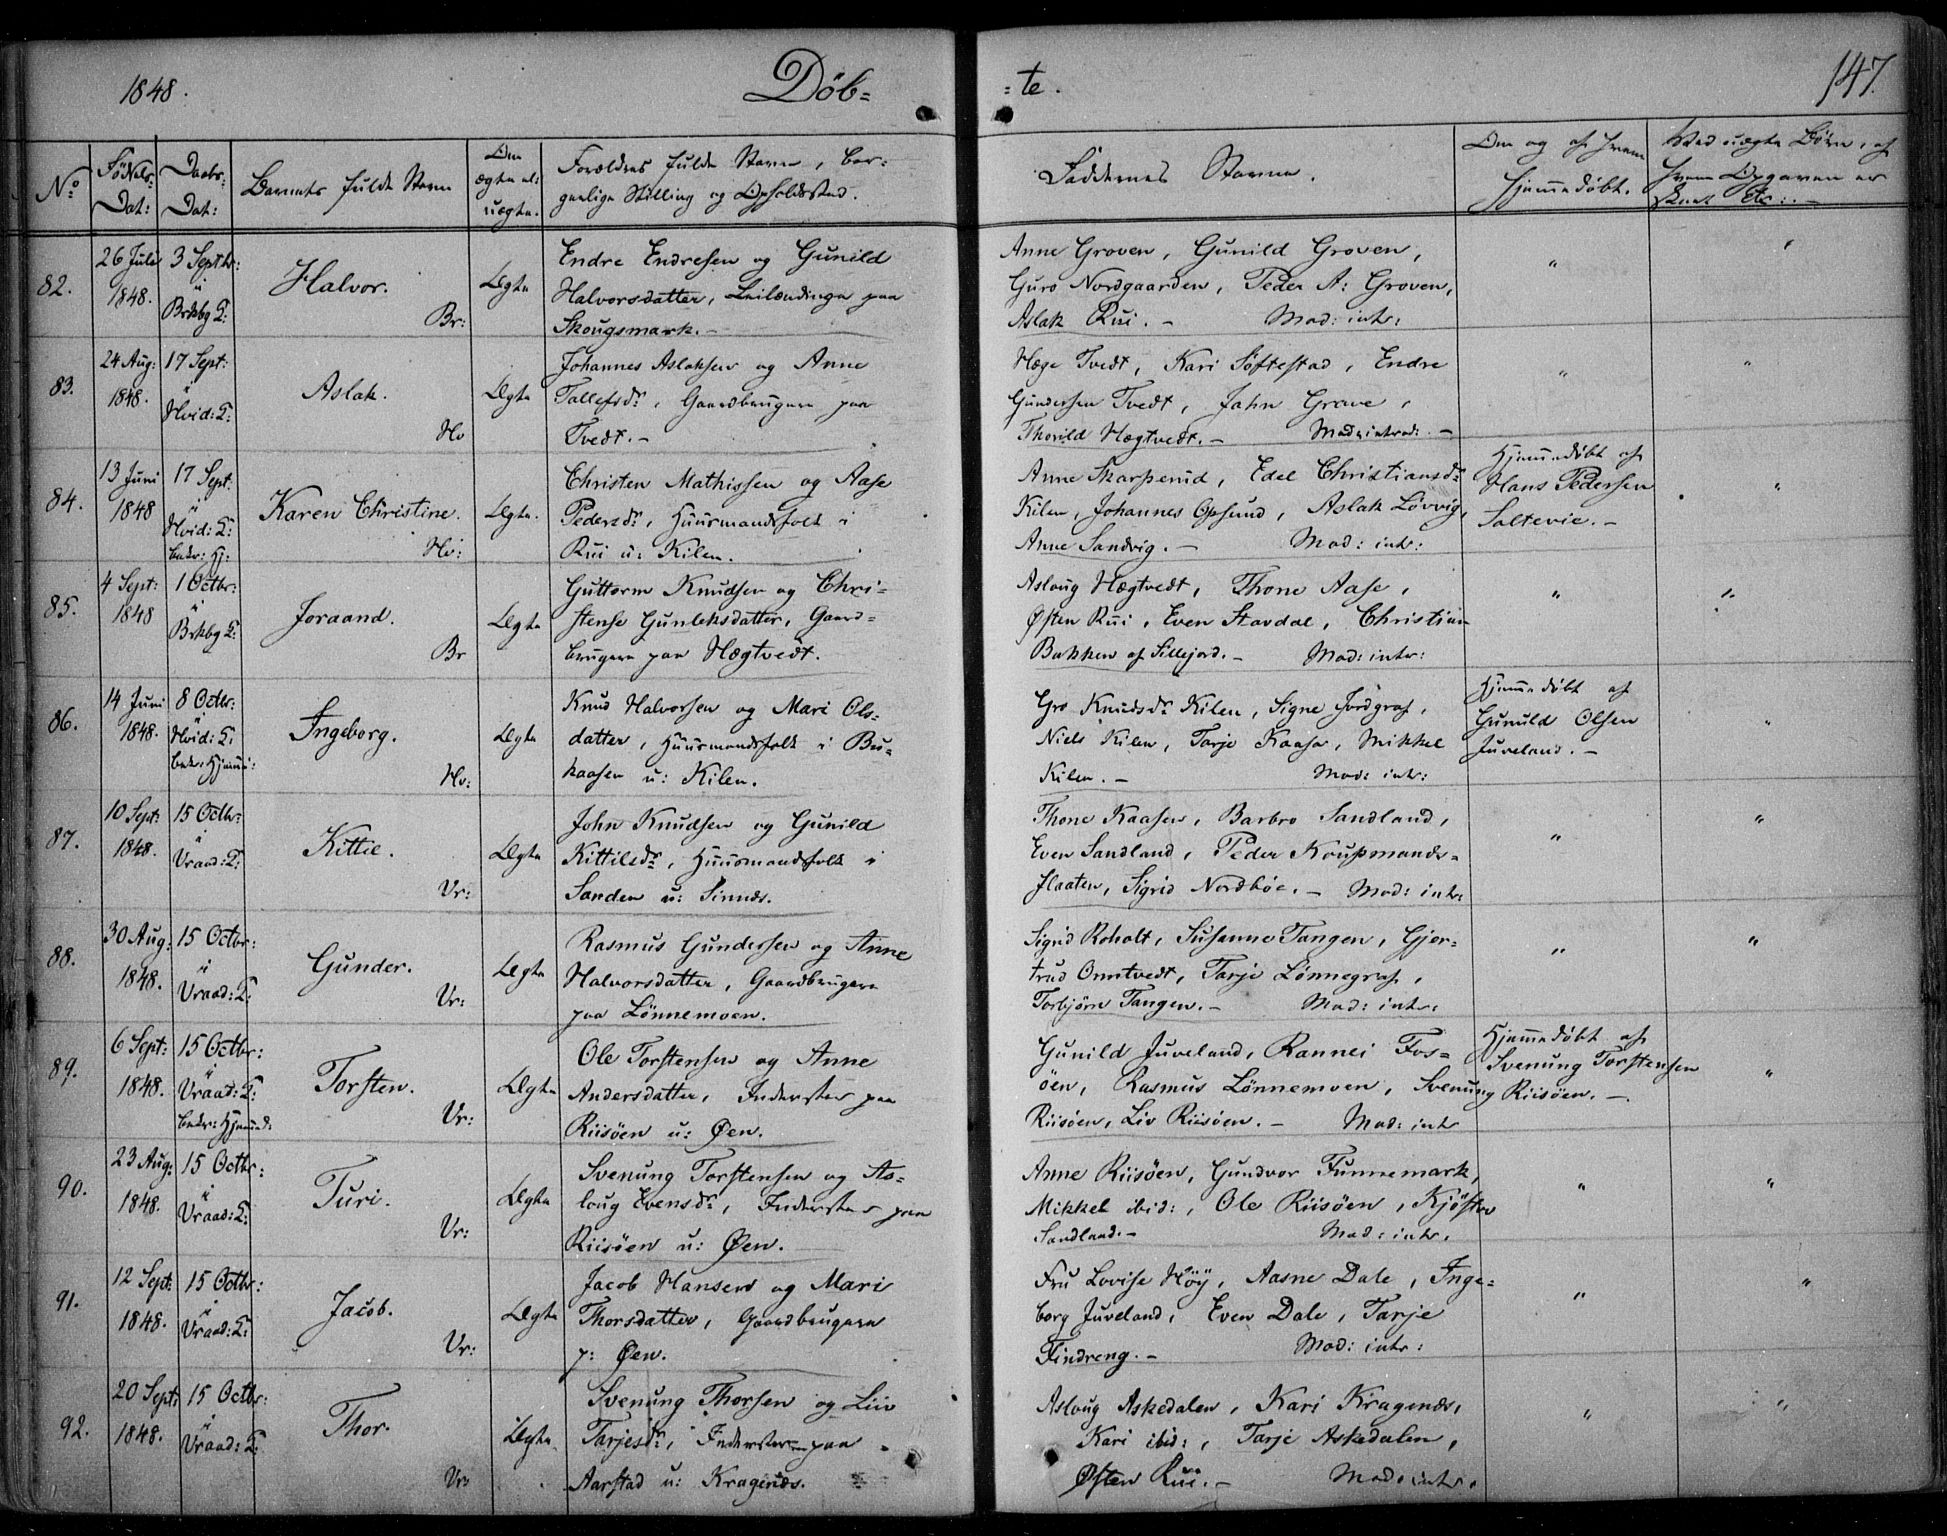 1848. Döb= =te. 147.
No Födsels- Dat: Daabs- Dat: Barnets fulde Navn Om ægte el: uægte. Forældres fulde Navn, bor- gerlige Stilling og Opholdssted. Faddernes Navne. Om og af hvem hjemmedøbt. Ved uægte Børn, af hvem Opgaven er skeet etc:. -
82. 26 Juli 1848. 3 Septbr: i Brkbg K: Halvor. Br: Ægte
Endre Endresen og Gunild
Halvorsdatter, Leilændinge paa
Skougsmark. -
Anne Groven, Gunild Groven,
Guro Nordgaarden, Peder A: Groven,
Aslak Rui. - Mod: intr:
" "
83. 24 Aug: 1848. 17 Sept: i Hvid: K: Aslak. Hv Ægte
Johannes Aslaksen og Anne
Tallefsdr, Gaardbrugere paa
Tvedt. -
Hæge Tvedt, Kari Söftestad, Endre
Gundersen Tvedt, John Grave,
Thorild Hægtvedt. - Mod: introd: -
" "
84. 13 Juni 1848 17 Sept: i Hvid: K: bekr: Hj: Karen Christine. Hv: Ægte.
Christen Mathissen og Aase
Pedersdr, Huusmandsfolk i
Rui u: Kilen.
Anne Skarperud, Edel Christiansdr
Kilen, Johannes Opsund, Aslak Lövvig,
Anne Sandvig. - Mod: intr:
Hjemmedøbt af
Hans Pedersen
Saltevie. -
"
85. 4 Sept: 1848 1 Octbr: i Brkbg K: Joraand. Br Ægte
Guttorm Knudsen og Chri-
stense Gunleksdatter, Gaard-
brugere paa Hægtvedt.
Aslaug Hægtvedt, Thone Aase,
Østen Rui, Even Stavdal, Christian
Bakken af Sillejord. - Mod: intr:
" "
86. 14 Juni 1848. 8 Octbr: i Hvid: K: bekr: Hjemme: Ingeborg. Hv: Ægte
Knud Halvorsen og Mari Ols-
datter, Huusmandsfolk i Bu-
kaasen u: Kilen.
Gro Knudsdr Kilen, Signe Jordgraf,
Niels Kilen, Tarje Kaasa, Mikkel
Kilen. - Mod: intr:
Hjemmedøbt af
Gunuld Olsen
Juveland. -
"
87. 10 Sept: 1848. 15 Octbr: i Vraad: K: Kittil. Vr: Ægte
John Knudsen og Gunild
Kittilsdr, Huusmandsfolk i
Sanden u: Sinnes.
Thone Kaasen, Barbro Sandland,
Even Sandland, Peder Koupmands-
flaaten, Sigrid Nordböe. - Mod: intr:
" "
88. 30 Aug: 1848. 15 Octbr: i Vraad: K: Gunder. Vr: Ægte
Rasmus Gundersen og Anne
Halvorsdatter, Gaardbrugere
paa Lönnemoen.
Sigrid Roholt, Susanne Tangen, Gjer-
trud Omtvedt, Tarje Lönnegraf,
Torbjörn Tangen. - Mod: intr:
" "
89. 6 Sept: 1848. 15 Octbr: i Vraad: K: bekr: Hjemmed: Torsten. Vr: Ægte
Ole Torstensen og Anne
Andersdatter, Inderster paa
Riisöen u: Øen.
Gunild Juveland, Rannei Fos-
öen, Rasmus Lönnemoen, Svenung
Riisöen, Liv Riisöen. - Mod: intr
Hjemmedøbt af
Svenung Torstensen
Riisöen. -
"
90. 23 Aug: 1848. 15 Octbr: i Vraad: K: Turi. Vr: Ægte
Svenung Torstensen og As-
loug Evensdr, Inderster paa
Riisöen u: Øen.
Anne Riisöen, Gundvor Funnemark,
Mikkel ibid:, Ole Riisöen, Kjöster
Sandland. - Mod: intr:
" "
91. 12 Sept: 1848. 15 Octbr: i Vraad: K: Jacob. Vr: Ægte
Jacob Hansen og Mari
Thorsdatter, Gaardbrugere
p: Øen.
Fru Lovise Höy, Aasne Dale, Inge-
borg Juveland, Even Dale, Tarje
Findreng. - Mod: intr:
" "
92. 20 Sept: 1848. 15 Octbr: i Vraad: K: Thor. Vr: Ægte.
Svenung Thorsen og Liv
Tarjesdr, Inderster paa
Aarstad u: Kragenæs.
Asloug Askedalen, Kari Kragenæs,
Kari ibid:, Tarje Askedalen,
Østen Rui. - Mod: intr.
" "